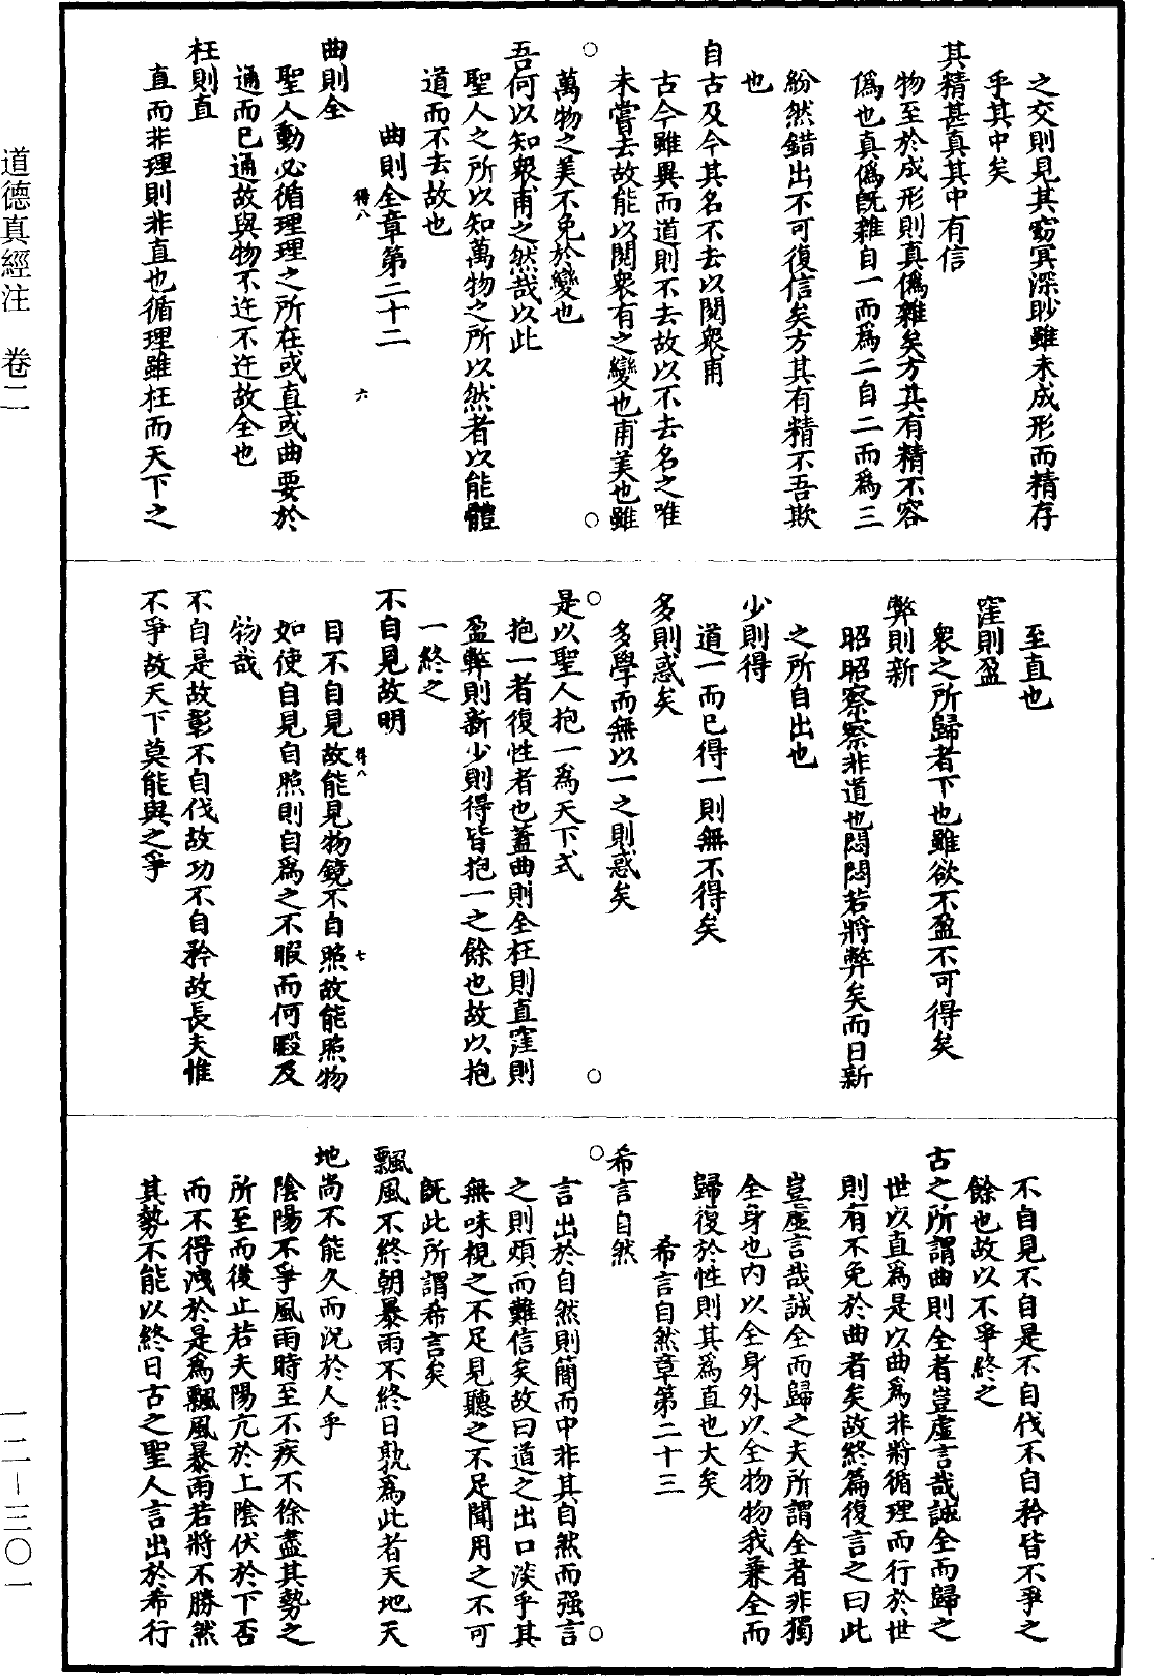 之交則見其窈冥深眇雖未成形而精存
乎其中矣
其精甚真其中有信
物至於成形則真僞雜矣方其有精不容
僞也真僞既雜自一而爲二自二而爲三
紛然錯出不可復信矣方其有精不吾欺
也
自古及今其名不去以閱衆甫
古今雖異而道則不去故以不去名之唯
未嘗去故能以閱衆有之變也甫美也雖
萬物之美不免於變也
吾何以知衆甫之然哉以此
聖人之所以知萬物之所以然者以能體
道而不去故也
曲則全章第二十二
得八 六
曲則全
聖人動必循理理之所在或直或曲要於
通而已通故與物不迕不迕故全也
枉則直
直而非理則非直也循理雖枉而天下之
至直也
窪則盈
衆之所歸者下也雖欲不盈不可得矣
弊則新
昭昭察察非道也悶悶若將弊矣而日新
之所自出也
少則得
道一而已得一則無不得矣
多則惑矣
多學而無以一之則惑矣
是以聖人抱一爲天下式
抱一者復性者也蓋曲則全枉則直窪則
盈弊則新少則得皆抱一之餘也故以抱
一終之
不自見故明
得八 七
目不自見故能見物鏡不自照故能照物
如使自見自照則自爲之不暇而何暇及
物哉
不自是故彰不自伐故功不自矜故長夫惟
不爭故天下莫能與之爭
不自見不自是不自伐不自矜皆不爭之
餘也故以不爭終之
古之所謂曲則全者豈虛言哉誠全而歸之
世以直爲是以曲爲非將循理而行於世
則有不免於曲者矣故終篇復言之曰此
豈虛言哉誠全而歸之夫所謂全者非獨
全身也內以全身外以全物物我兼全而
歸復於性則其爲直也大矣
希言自然章第二十三
希言自然
言出於自然則簡而中非其自然而强言
之則煩而難信矣故曰道之出口淡乎其
無味視之不足見聽之不足聞用之不可
既此所謂希言矣
飄風不終朝暴雨不終日孰爲此者天地天
地尚不能久而況於人乎
陰陽不爭風雨時至不疾不徐盡其勢之
所至而後止若夫陽亢於上陰伏於下否
而不得洩於是爲飄風暴雨若將不勝然
其勢不能以終日古之聖人言出於希行
道德真經注 卷二
一二－三〇一